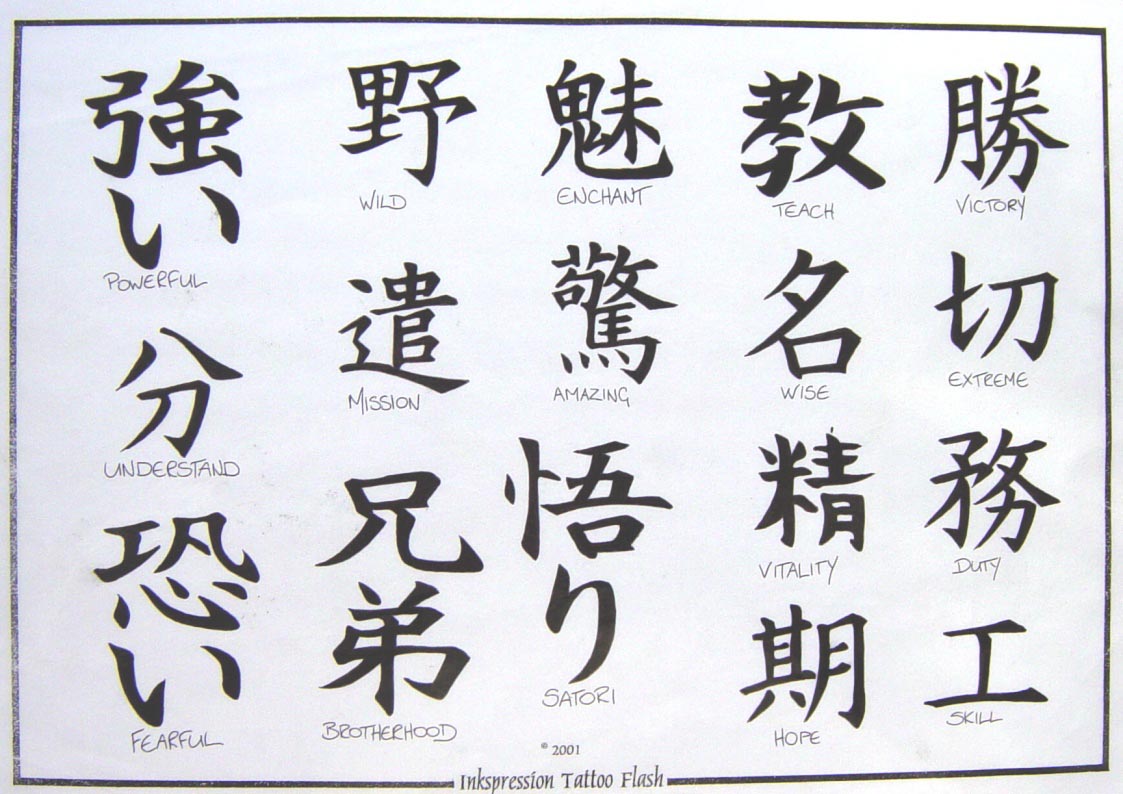 強い
POWERFUL
分
UNDERSTAND
恐い
FEARFUL
野
WILD
遣
MISSION
兄弟
BROTHERHOOD
魅
ENCHANT
驚
AMAZING
悟り
SATORI
教
TEACH
名
WISE
精
VITALITY
期
HOPE
勝
VICTORY
切
EXTREME
務
DUTY
工
SKILL
© 2001
Inkspression Tattoo Flash